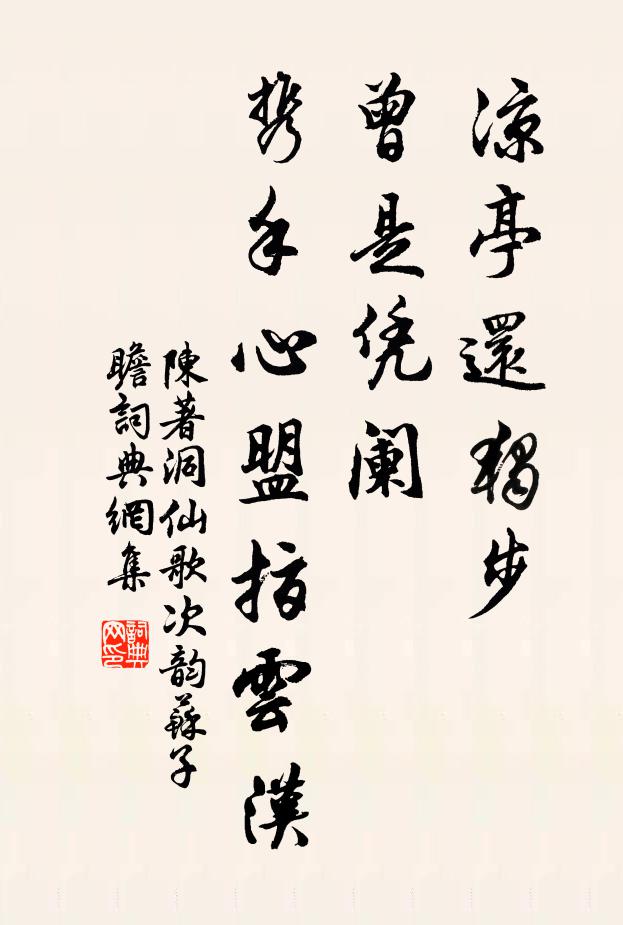 涼亭還獨步
曾是凭阑
携手心盟指雲漢
陳著洞仙歌次韵蘇子
瞻詞典網集
詞典
网印